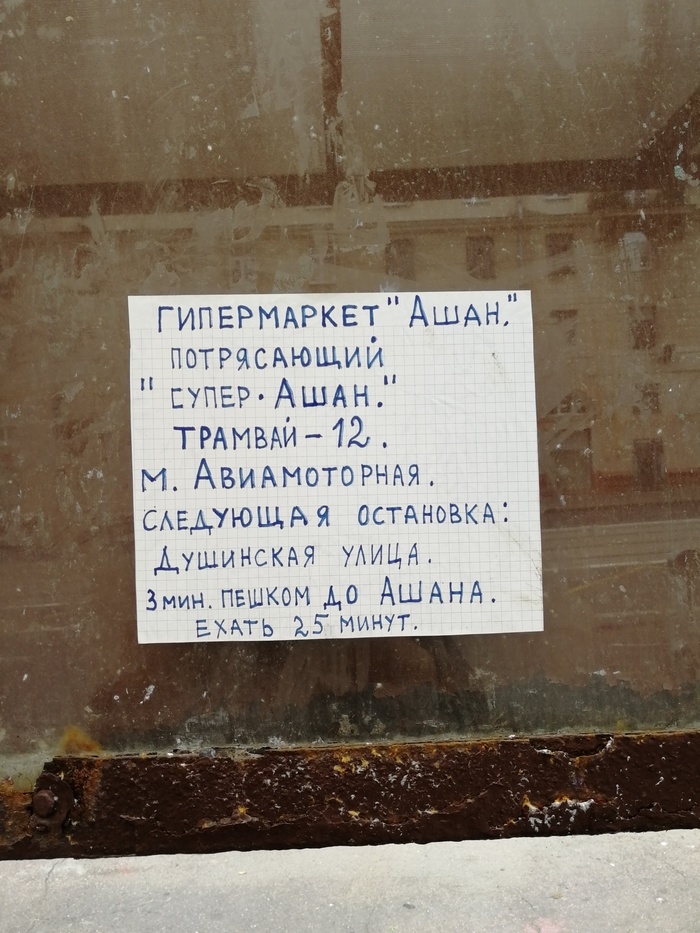 ГИПЕРМАРКЕТ "АШАН."
ПОТРЯСАЮЩИЙ
"СУПЕР · АШАН."
ТРАМВАЙ – 12.
М. АВИАМОТОРНАЯ.
СЛЕДУЮЩАЯ ОСТАНОВКА:
ДУШИНСКАЯ УЛИЦА.
3 МИН. ПЕШКОМ ДО АШАНА.
ЕХАТЬ 25 МИНУТ.